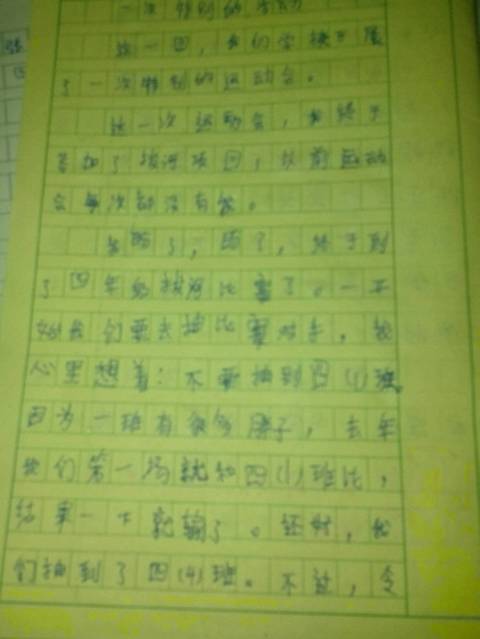 一次特别的运动
周一四,我们学校开展
了一次特别的运动会。
这一次运动会,我终于
参加了拔河项目,以前运动
会每次都没有我。
来了,终于到
了四年级拔河比赛了。一开
始我们要去抽比赛对手,我
心里想着:不要抽到四(1)班
因为一班有很多胖子,去年
我们第一场就和四(1)班比,
结果一下就输了。还好,我
们抽到了四(4)班。不过,令